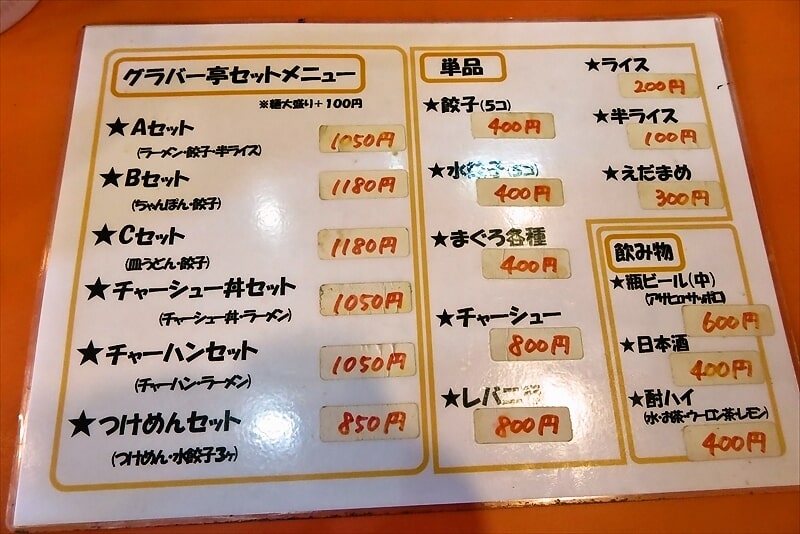 グラバー亭セットメニュー
※麺大盛り+100円
★Aセット
1050円
(ラーメン・餃子・半ライス)
★Bセット
1180円
(ちゃんぽん・餃子)
★Cセット
1180円
(皿うどん・餃子)
★チャーシュー丼セット
1050円
(チャーシュー丼・ラーメン)
★チャーハンセット
1050円
(チャーハン・ラーメン)
★つけめんセット
850円
(つけめん・水餃子3ヶ)
単品
★餃子(5コ)
400円
★水餃子(5コ)
400円
★まぐろ各種
400円
★チャーシュー
800円
★レバニラ
800円
★ライス
200円
★半ライス
100円
★えだまめ
300円
飲み物
★瓶ビール(中)
(アサヒorサッポロ)
600円
★日本酒
400円
★酎ハイ
(水・お茶・ウーロン茶・レモン)
400円